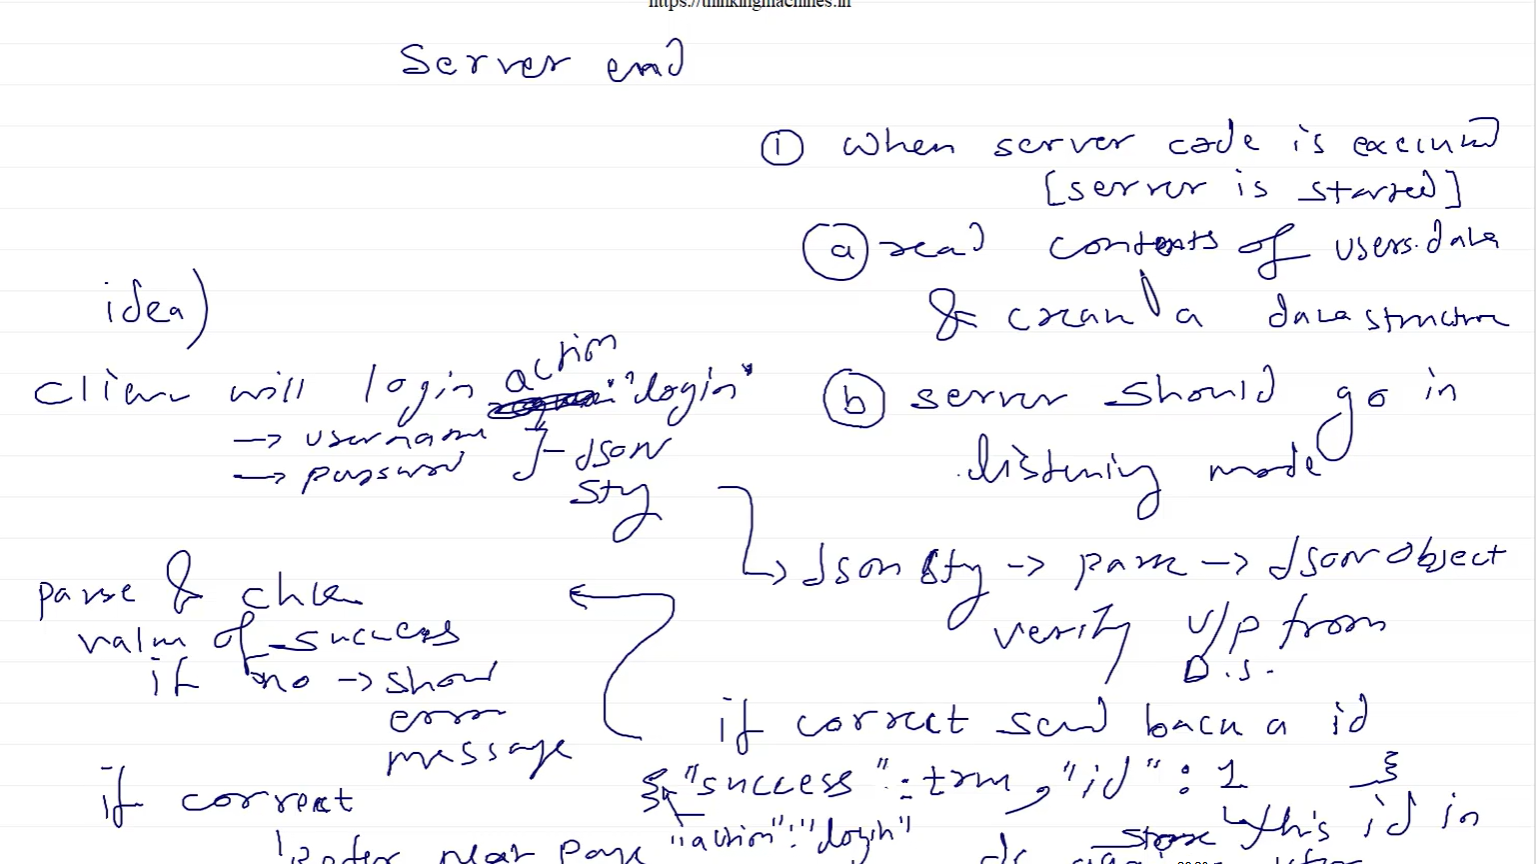 https://thinkingmachines.in
Server end
① when server code is executed
[server is started]
ⓐ read contents of users.data
& create a data structure
ⓑ server should go in
listening mode
idea)
client will login action : "login"
→ username } - JSON
→ password
Stg
→ JSON Stg → parse → JSON Object
verify U/P from
D.S.
if correct send back a id
{ "success" : true , "id" : 1 }
"action" : "login"
store this id in
parse & check
value of success
if no → show
error
message
if correct
render next page